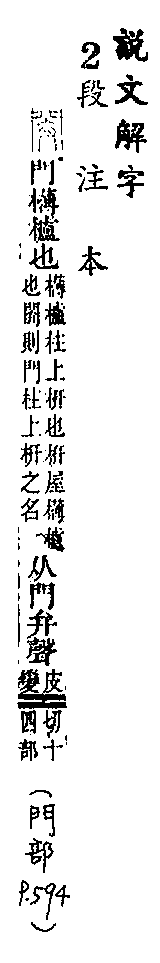 說文解字
2段注本
閞 門欂櫨也 欂櫨柱上枅也枅屋欂櫨也閞則門柱上枅之名 从門弁聲 皮變切十四部 (門部 P.594)